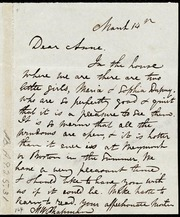 March 14th
Dear Anne.
In the house
where we are there are two
little girls, Maria & Sophie
who are so perfectly good & quiet
that it is a pleasure to see them.
It is so warm that all the
windows are open, & it is hotter
then it ever is at Weymouth
or Boston in the Summer. We
have a very pleasant time,
& should like to have you with
us if it could be.
to hear, to read. your affectionate